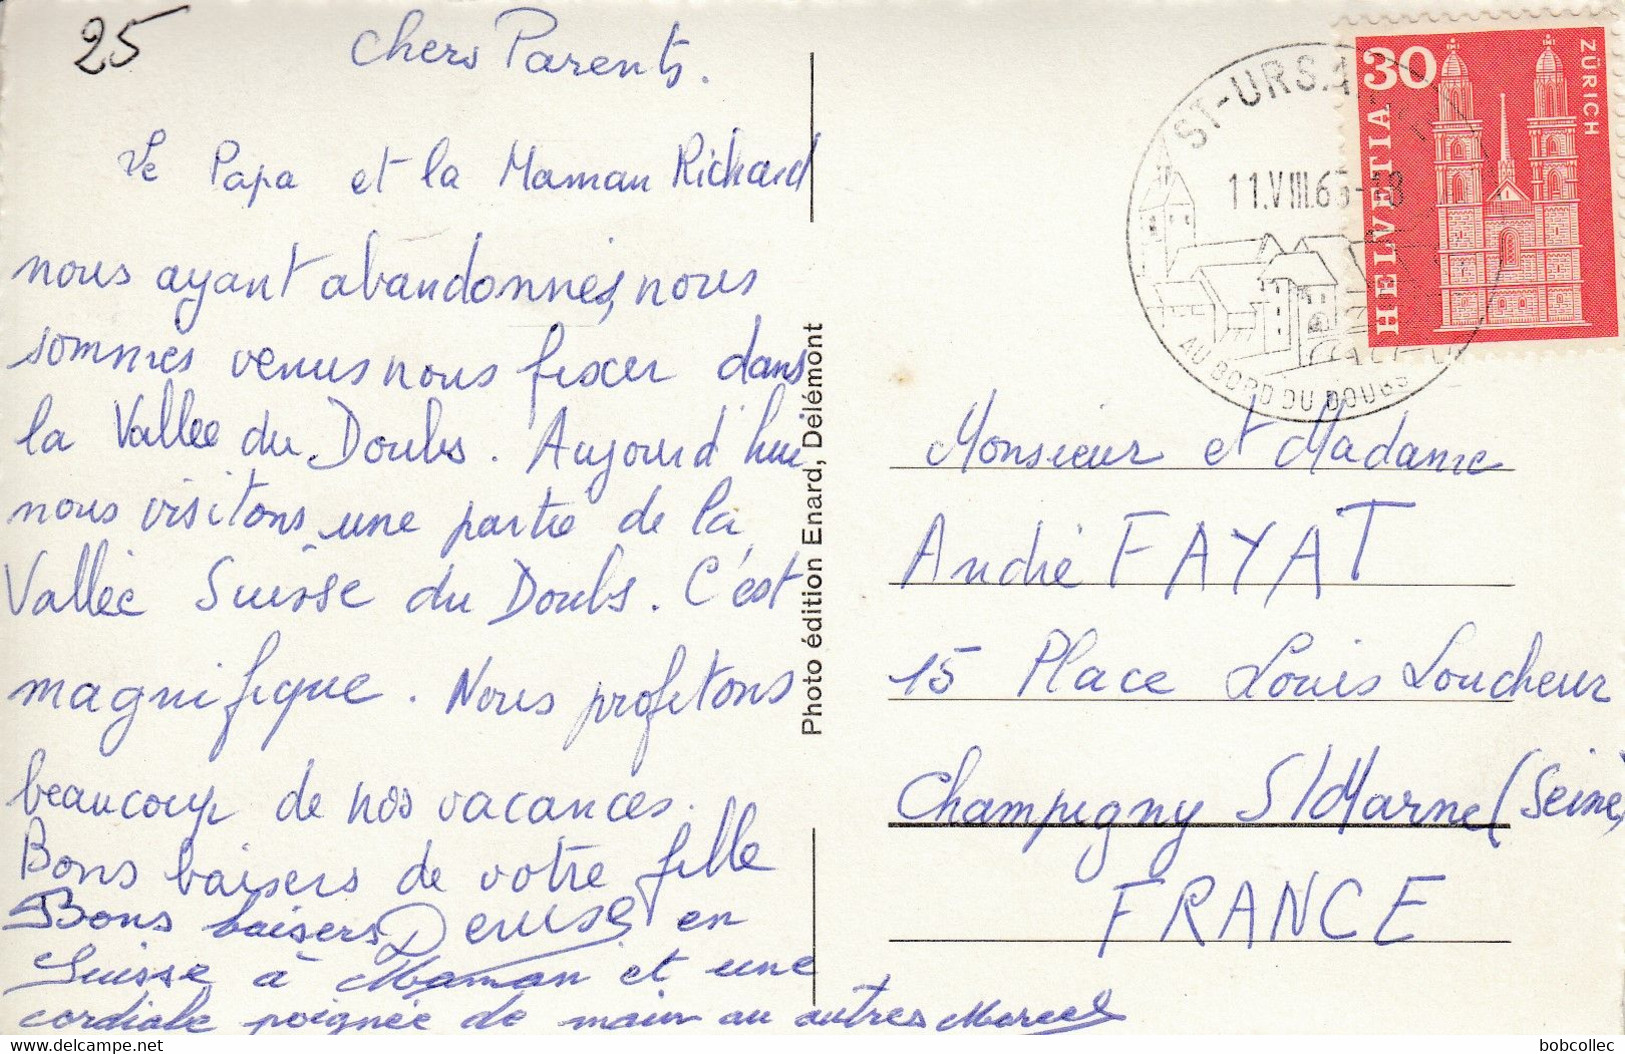 25
Chers Parents.
Le Papa et la Maman Richard
nous ayant abandonnés, nous
sommes venus nous fixer dans
la Vallée du Doubs. Aujourd'hui
nous visitons une partie de la
Vallée Suisse du Doubs. C'est
magnifique. Nous profitons
beaucoup de nos vacances.
Bons baisers de votre fille
Denise
Bons baisers en
Suisse à Maman et une
cordiale poignée de main au autres Marcel
Photo édition Enard, Delémont
ST-URSA
11.VIII.65-18
AU BORD DU DOUBS
30
HELVETIA
ZÜRICH
Monsieur et Madame
André FAYAT
15 Place Louis Loucheur
Champigny S/Marne (Seine)
FRANCE
www.delcampe.net
bobcollec